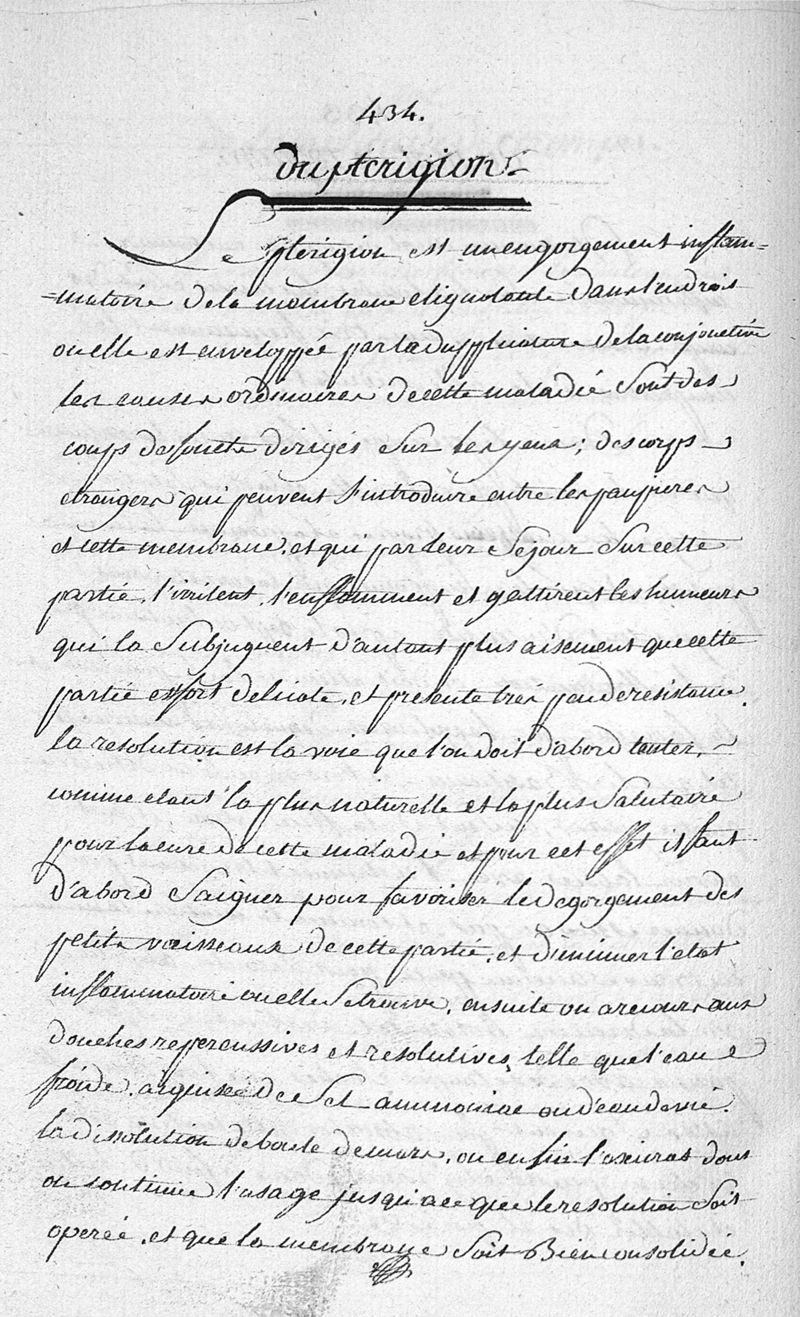 434.
du pterigion
Le pterigion est un engorgement inflam=
=matoire de la membrane clignotante dans l'endroit
ou elle est enveloppée par la dupplicature de la conjonctive
les causes ordinaires de cette maladie sont des
coups de fouets dirigés sur les yeux; des corps
etrangers qui peuvent s'introduire entre les paupieres
et cette membrane, et qui par leur sejour sur cette
partie, l'irritent, l'enflamment et y attirent les humeurs
qui la subjuguent d'autant plus aisement que cette
partie est fort delicate, et presente tres peu de resistance.
la resolution est la voie que l'on doit d'abord tenter,
comme etant la plus naturelle et la plus salutaire
pour la cure de cette maladie et pour cet effet il faut
d'abord saigner pour favoriser le degorgement des
petits vaisseaux de cette partie, et diminuer l'etat
inflammatoire ou elle se trouve, ensuite on a recours aux
douches repercussives et resolutives, telle que l'eau
froide, aiguisée de sel ammoniac ou d'eau de vie.
la dissolution de boule de mars, ou enfin l'oxicrat dont
on continue l'usage jusqu'a ce que le resolution soit
operée, et que la membrane soit bien consolidée.